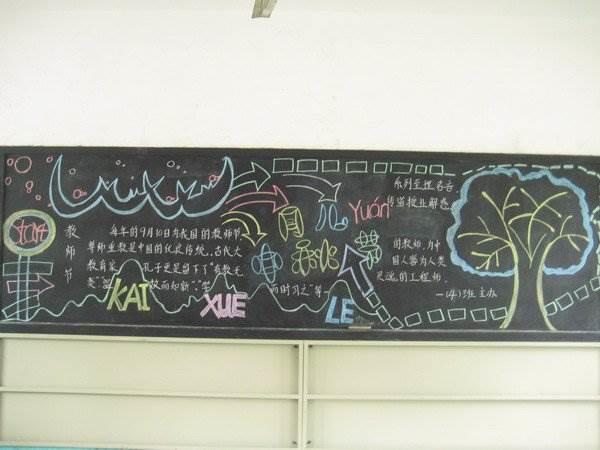 教师节
每年的9月10日为我国的教师节.
尊师重教是中国的优良传统,古代大
教育家 孔子更是留下了"有教无
类"温 故而知新","学 而时习之"等一
系列至理名言
传道授业解惑
的教师,为中
国人誉为人类
灵魂的工程师.
一(4)班主办
Yuán
KAI XUE LE